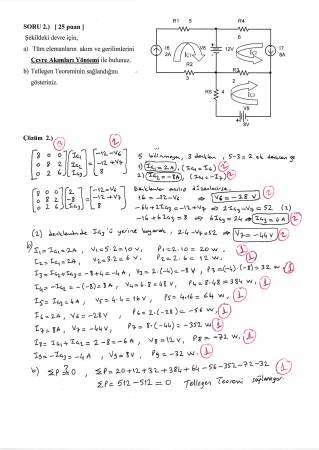 SORU 2.) [ 25 puan ]
Şekildeki devre için,
a) Tüm elemanların akım ve gerilimlerini
Çevre Akımları Yöntemi ile bulunuz.
b) Tellegen Teoreminin sağlandığını
gösteriniz.
R1 5
R4 6
I6 2A
IC1
V8 12V
IC2
I7 8A
R2 3
R3 2
R5 4
IC3
V9 8V
Çözüm 2.)
3 2
8 0 0 IG1 -12-V6
0 8 2 IG2 = -12+V7
0 2 6 IG3 8
5 bilinmeyen, 3 denklem, 5-3=2 ek denklem ge
1) IG1 = 2A, (IG1 = I6) 2
2) IG2 = -8A, (IG2 = -I7) 2
8 0 0 2 -12-V6
0 8 2 -8 = -12+V7
0 2 6 IG3 8
Denklemler açılıp düzenlenirse,
16 = -12-V6 ⇒ V6 = -28 V 2
-64+2IG3 = -12+V7 ⇒ 2IG3-V7 = 52 (2)
-16+6IG3 = 8 ⇒ 6IG3 = 24 ⇒ IG3 = 4A 2
(2) denkleminde IG3'ü yerine koyarak, 2.4-V7=52 ⇒ V7 = -44V 2
b) I1 = IG1 = 2A, V1 = 5.2 = 10 V, P1 = 2.10 = 20 W, 1
I2 = IG1 = 2A, V2 = 3.2 = 6 V, P2 = 2.6 = 12 W, 1
I3 = IG2+IG3 = -8+4 = -4A, V3 = 2.(-4) = -8V, P3 = (-4).(-8) = 32 W, 1
I4 = -IG2 = -(-8) = 8A, V4 = 6.8 = 48V, P4 = 8.48 = 384 W, 1
I5 = IG3 = 4A, V5 = 4.4 = 16 V, P5 = 4.16 = 64 W, 1
I6 = 2A, V6 = -28V, P6 = 2.(-28) = -56 W, 1
I7 = 8A, V7 = -44V, P7 = 8.(-44) = -352 W, 1
I8 = IG1+IG2 = 2-8 = -6A, V8 = 12V, P8 = -72 W, 1
I9 = -IG3 = -4A, V9 = 8V, P9 = -32 W. 1
b) ΣP = 0, ΣP = 20+12+32+384+64-56-352-72-32 1
ΣP = 512-512 = 0 Tellegen Teoremi sağlanıyor.